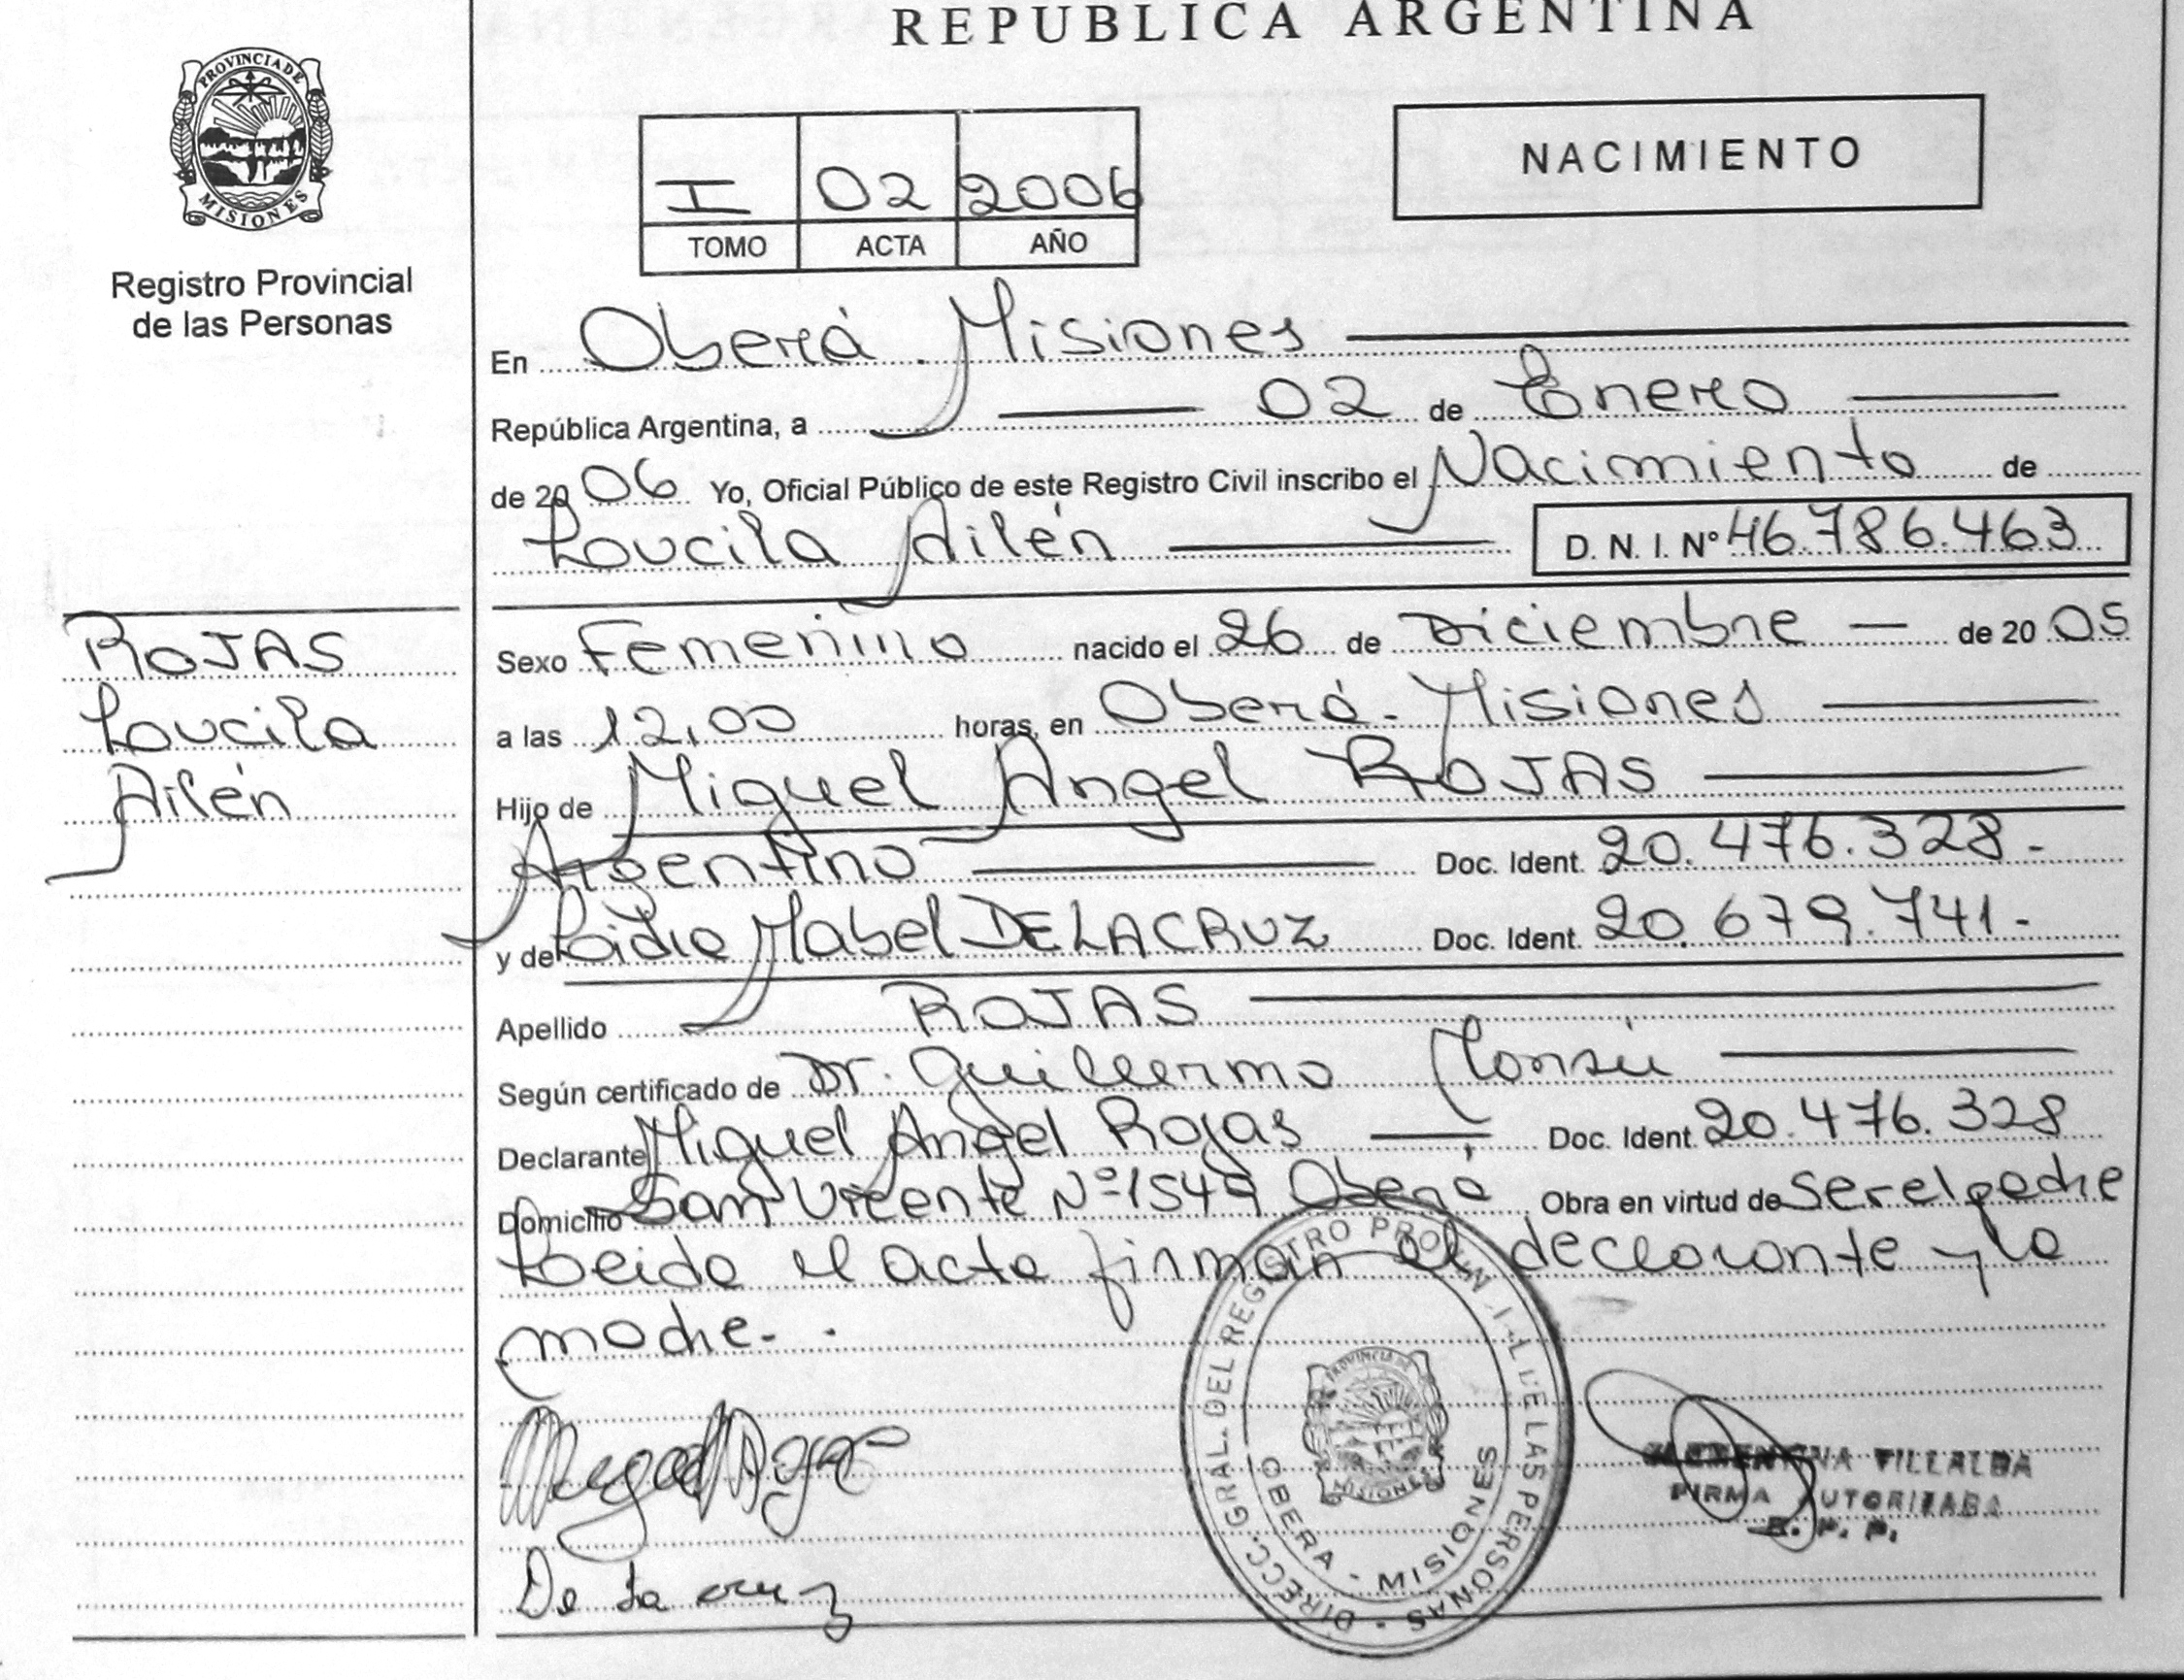 REPUBLICA ARGENTINA
PROVINCIA DE
MISIONES
Registro Provincial
de las Personas
I 02 2006
TOMO ACTA AÑO
NACIMIENTO
En Oberá Misiones
República Argentina, a 02 de Enero
de 2006 Yo, Oficial Público de este Registro Civil inscribo el Nacimiento de
Loucila Ailén D. N. I. Nº 46.786.463
ROJAS
Loucila
Ailén
Sexo Femenino nacido el 26 de Diciembre de 20 05
a las 12,00 horas, en Oberá - Misiones
Hijo de Miguel Angel ROJAS
Argentino Doc. Ident. 20.476.328.-
y de Lidia Mabel DE LA CRUZ Doc. Ident. 20.679.741.-
Apellido ROJAS
Según certificado de Dr. Guillermo
Declarante Miguel Angel Rojas Doc. Ident. 20.476.328
Domicilio San Vicente Nº 1549 Oberá Obra en virtud de ser el padre
Leida el acta firman el declarante y la
madre.-
De la cruz
DIRECC. GRAL. DEL REGISTRO PROVINCIAL DE LAS PERSONAS
PROVINCIA DE
MISIONES
OBERA - MISIONES
VILLALBA
FIRMA AUTORIZADA
R. P. P.